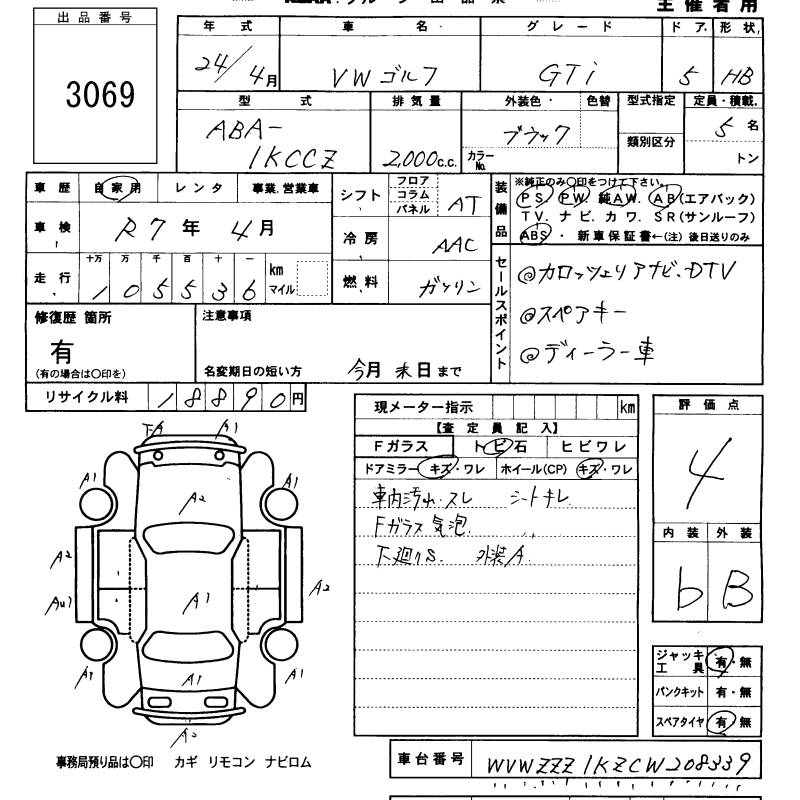 主催者用
出品番号
3069
年式 車名 グレード ドア 形状
24/4月 VWゴルフ GTi 5 HB
型式 排気量 外装色 色替 型式指定 定員・積載
ABA-
1KCCZ 2,000c.c. ブラック カラーNo. 類別区分 5名
トン
車歴 自家用 レンタ 事業.営業車
車検 R7年 4月
走行 十万 万 千 百 十 一
105536 km マイル
シフト フロア コラム パネル AT
冷房 AAC
燃料 ガソリン
装備品 ※純正のみ○印をつけて下さい。
PS PW. 純AW. AB(エアバック)
TV. ナビ. カワ. SR(サンルーフ)
ABS ・ 新車保証書←(注)後日送りのみ
セールスポイント
◎カロッツェリアナビ.DTV
◎スペアキー
◎ディーラー車
修復歴 箇所
有
(有の場合は○印を)
注意事項
名変期日の短い方 今月末日まで
リサイクル料 18890円
現メーター指示 km
【査定員記入】
Fガラス トビ石 ヒビワレ
ドアミラー キズ・ワレ ホイール(CP) キズ・ワレ
車内汚れ.スレ シートキレ
Fガラス気泡.
下廻りS. 外装A.
評価点
4
内装 外装
b B
ジャッキ工具 有・無
パンクキット 有・無
スペアタイヤ 有・無
A1
A1
A1
A2
A2
A1
A2
A1
A1
A1
事務局預り品は○印 カギ リモコン ナビロム
車台番号 WVWZZZ1KZCW208339